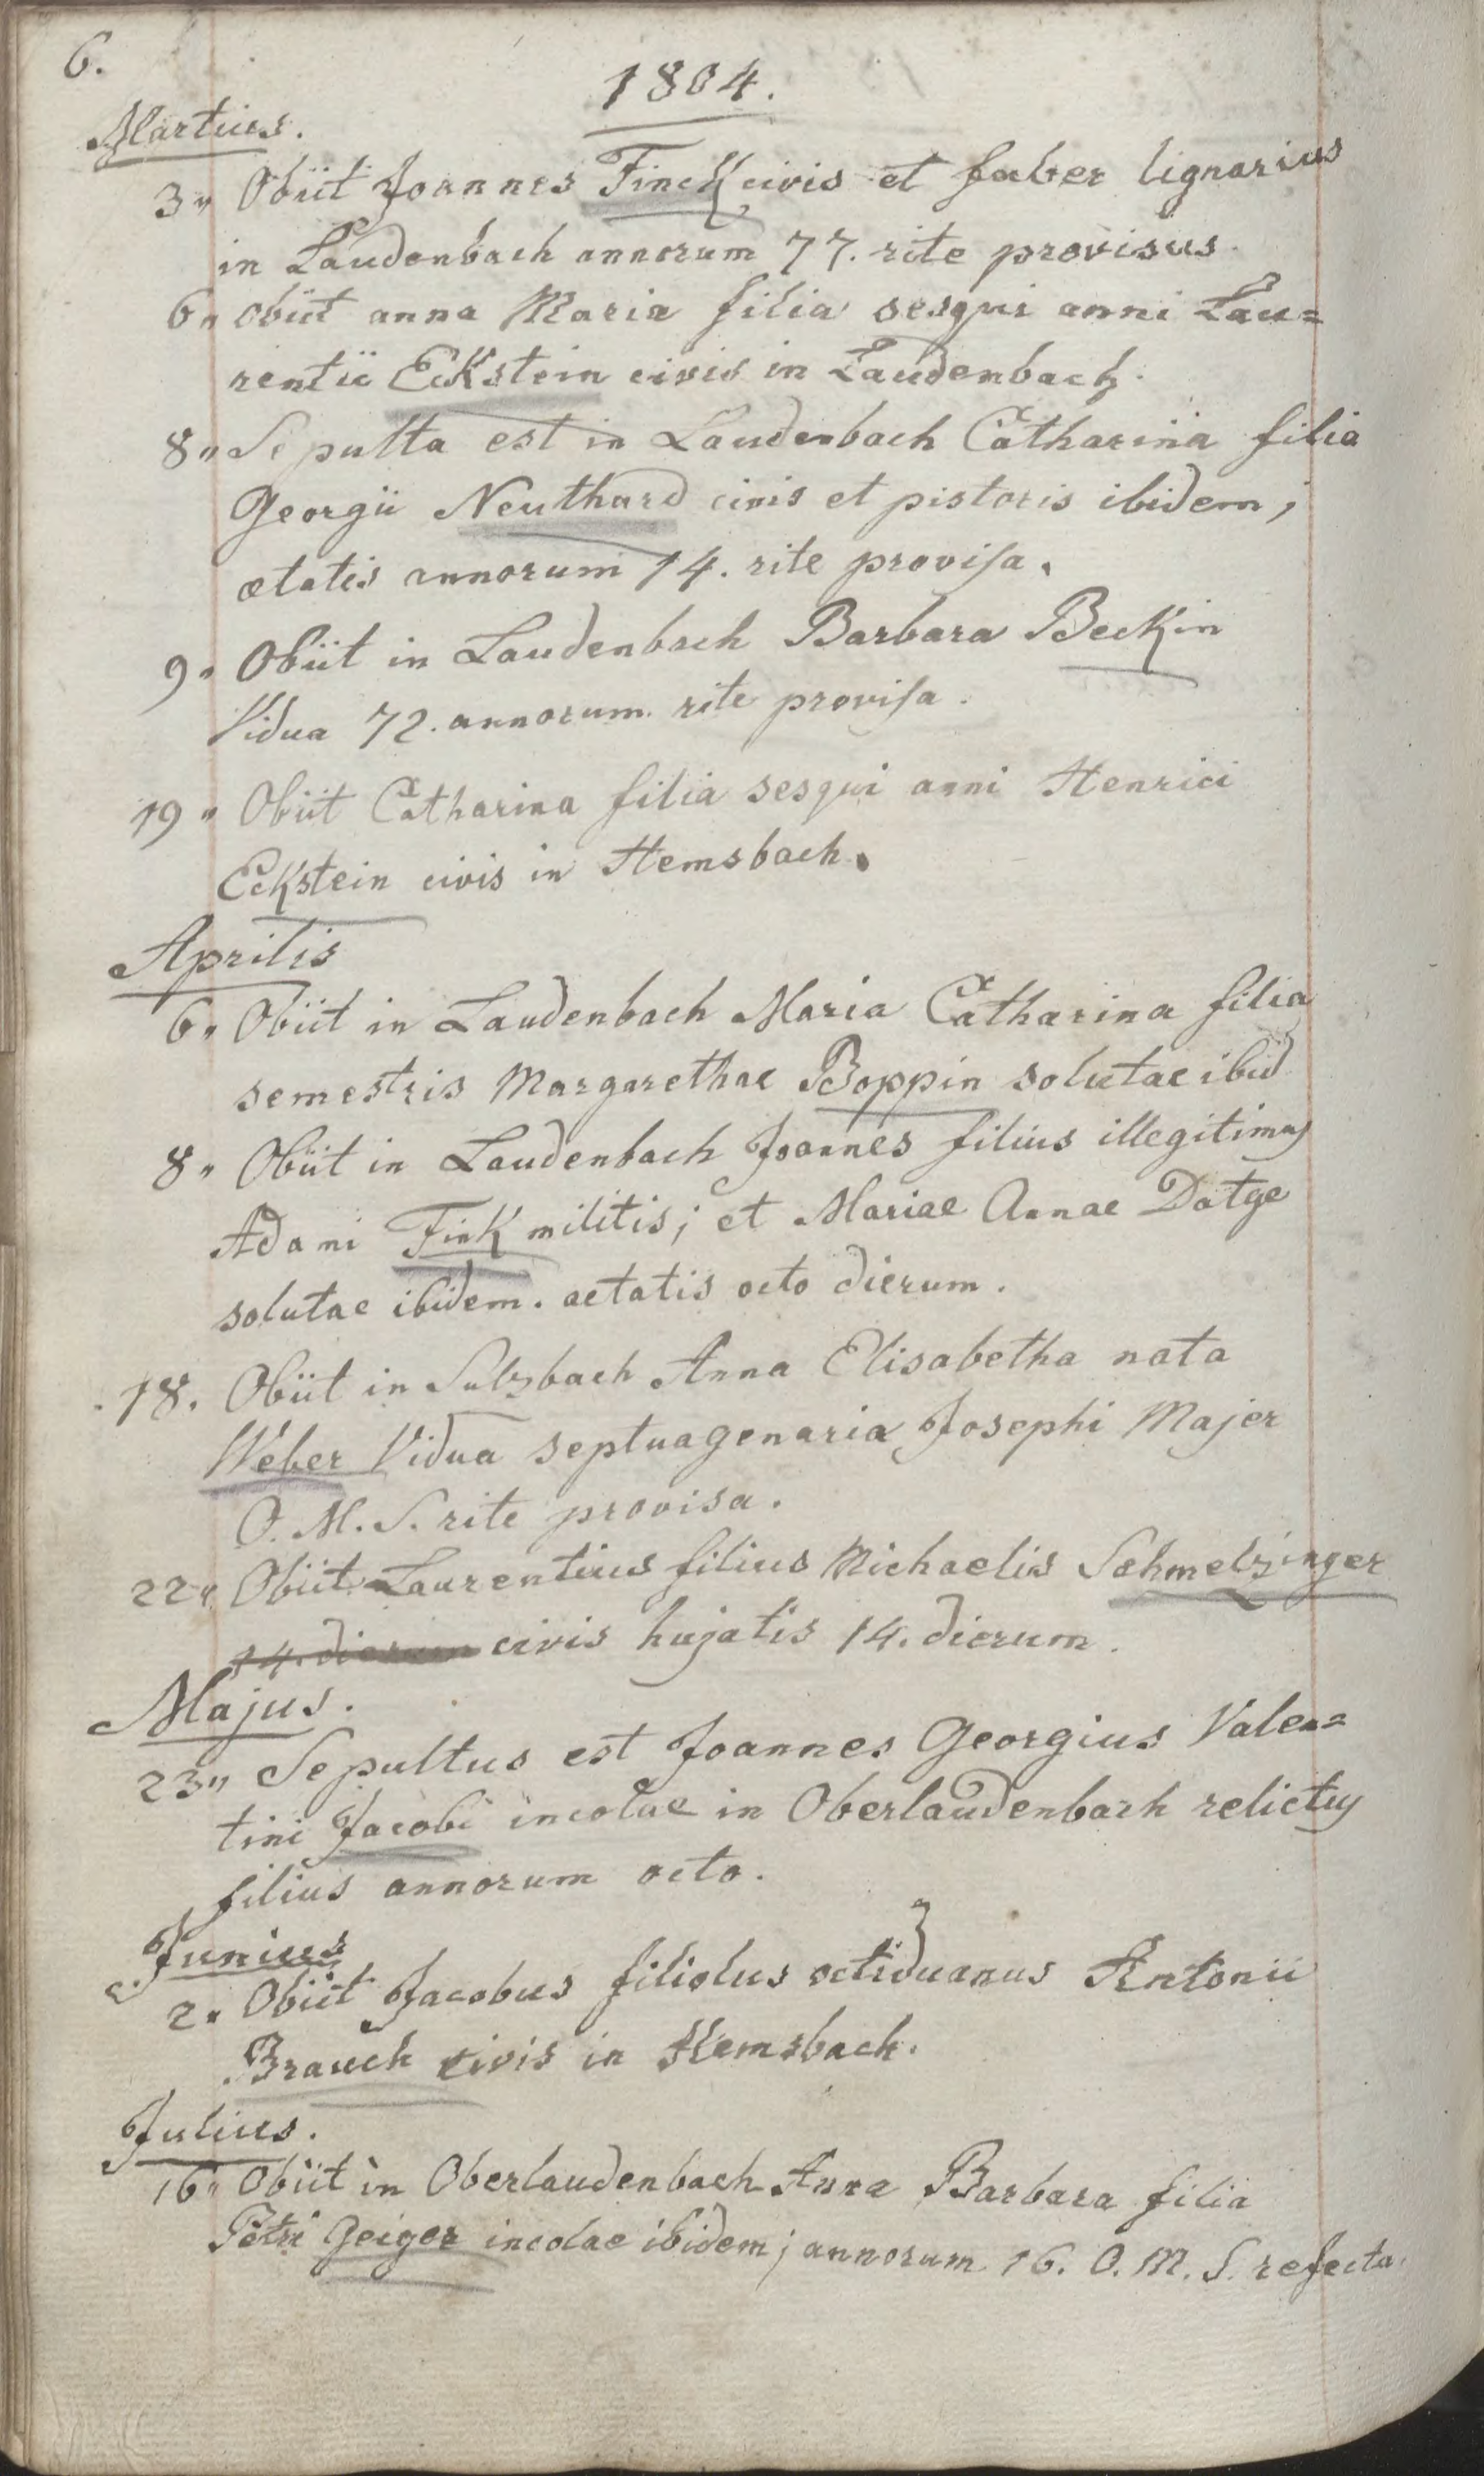 6.
1804.
Martius.
3" Obiit Joannes Finck civis et faber lignarius
in Laudenbach annorum 77. rite provisus.
6" obiit anna Maria filia sesqui anni Lau=
rentii Eckstein civis in Laudenbach.
8" Sepulta est in Laudenbach Catharina filia
Georgii Neuthard civis et pistoris ibidem;
ætatis annorum 14. rite provisa.
9" Obiit in Laudenbach Barbara Beckin
Vidua 72. annorum. rite provisa.
19" Obiit Catharina filia sesqui anni Henrici
Eckstein civis in Hemsbach.
Aprilis
6" Obiit in Laudenbach Maria Catharina filia
semestris Margarethae Boppin solutae ibid
8" Obiit in Laudenbach Joannes filius illegitimus
Adami Fink militis; et Mariae Annae Datge
solutae ibidem. aetatis octo dierum.
18. Obiit in Sulzbach Anna Elisabetha nata
Weber Vidua septuagenaria Josephi Majer
O. M. S. rite provisa.
22" Obiit Laurentius filius Michaelis Schmelzinger
14. dierum civis hujatis 14. dierum.
Majus.
23" Sepultus est Joannes Georgius Valen=
tini Jacobi incolae in Oberlaudenbach relictus
filius annorum octo.
Junius
2" Obiit Jacobus filiolus octiduanus Antonii
Brauch civis in Hemsbach.
Julius.
16" Obiit in Oberlaudenbach Anna Barbara filia
Petri Geiger incolae ibidem; annorum 16. O. M. S. refecta.